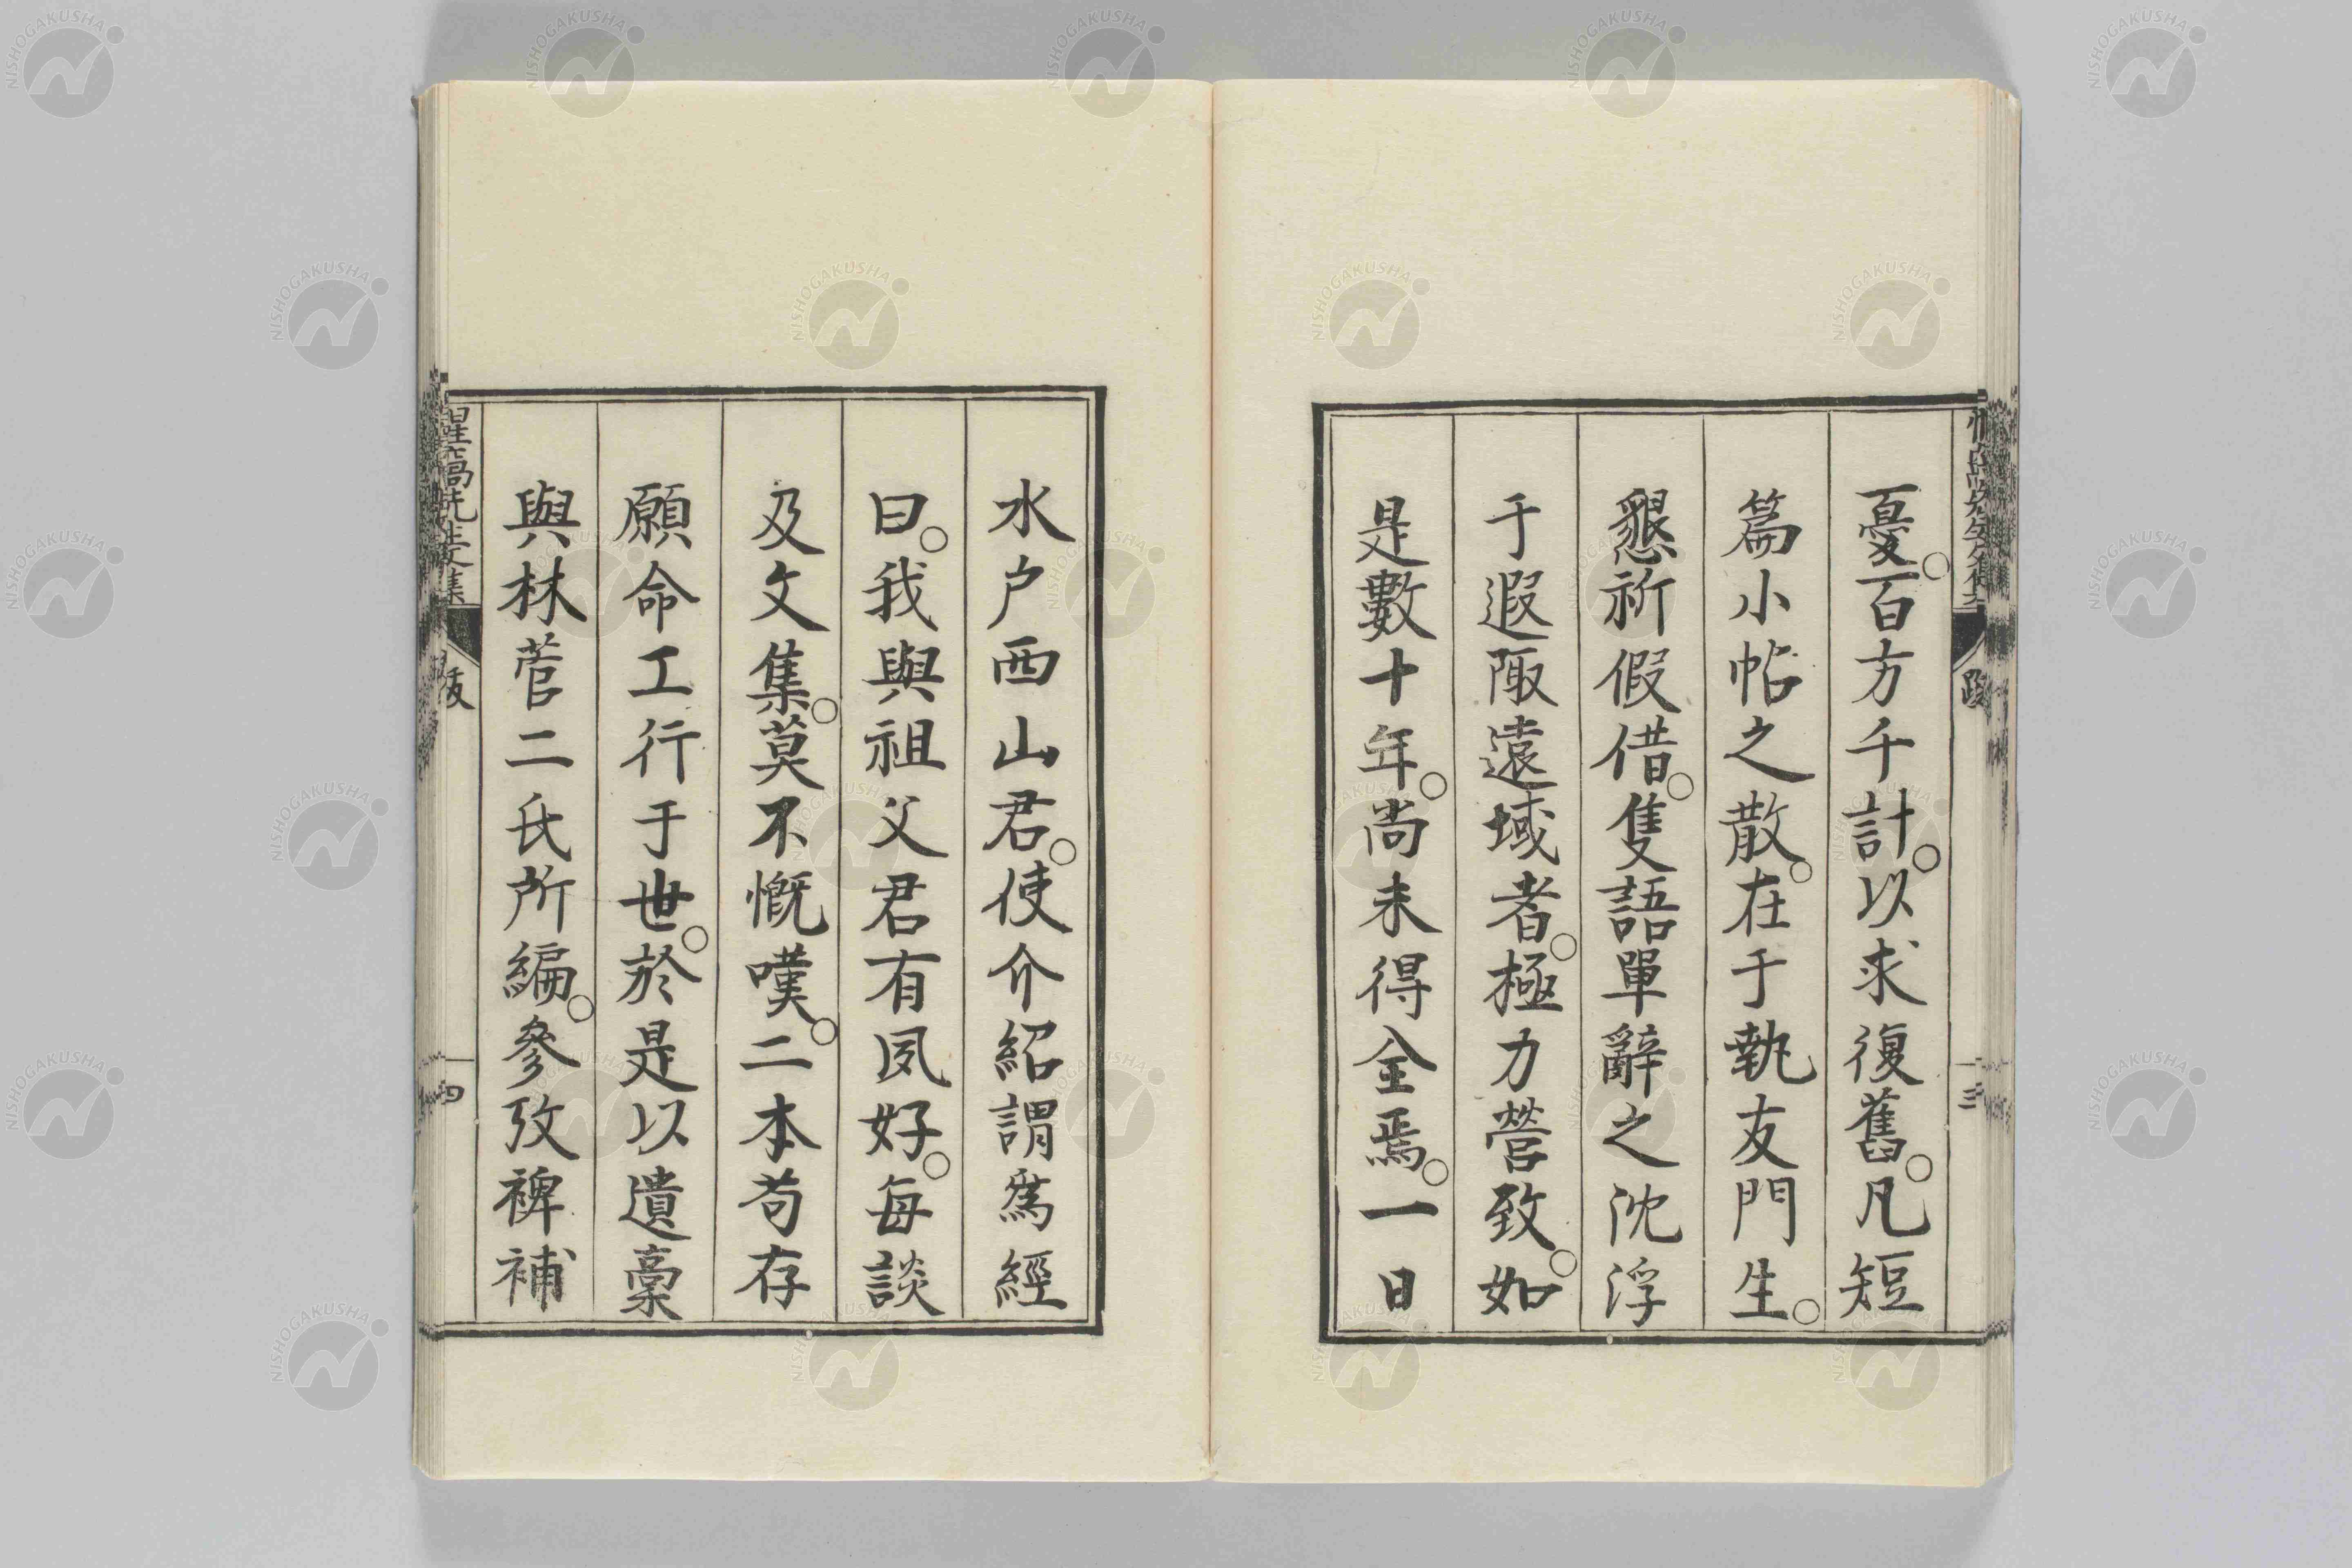 憂。百方千計。以求復舊。凡短
篇小帖之散。在于執友門生。
懇祈假借。隻語單辭之沈浮
于遐陬遠域者。極力營致。如
是數十年。尚未得全焉。一日
三
水户西山君。使介紹謂爲經
曰。我與祖父君有夙好。每談
及文集。莫不慨嘆。二本苟存
願命工行于世。於是以遺稾
與林菅二氏所編。參攷裨補
惺窩先生文集
跋
四
NISHOGAKUSHA